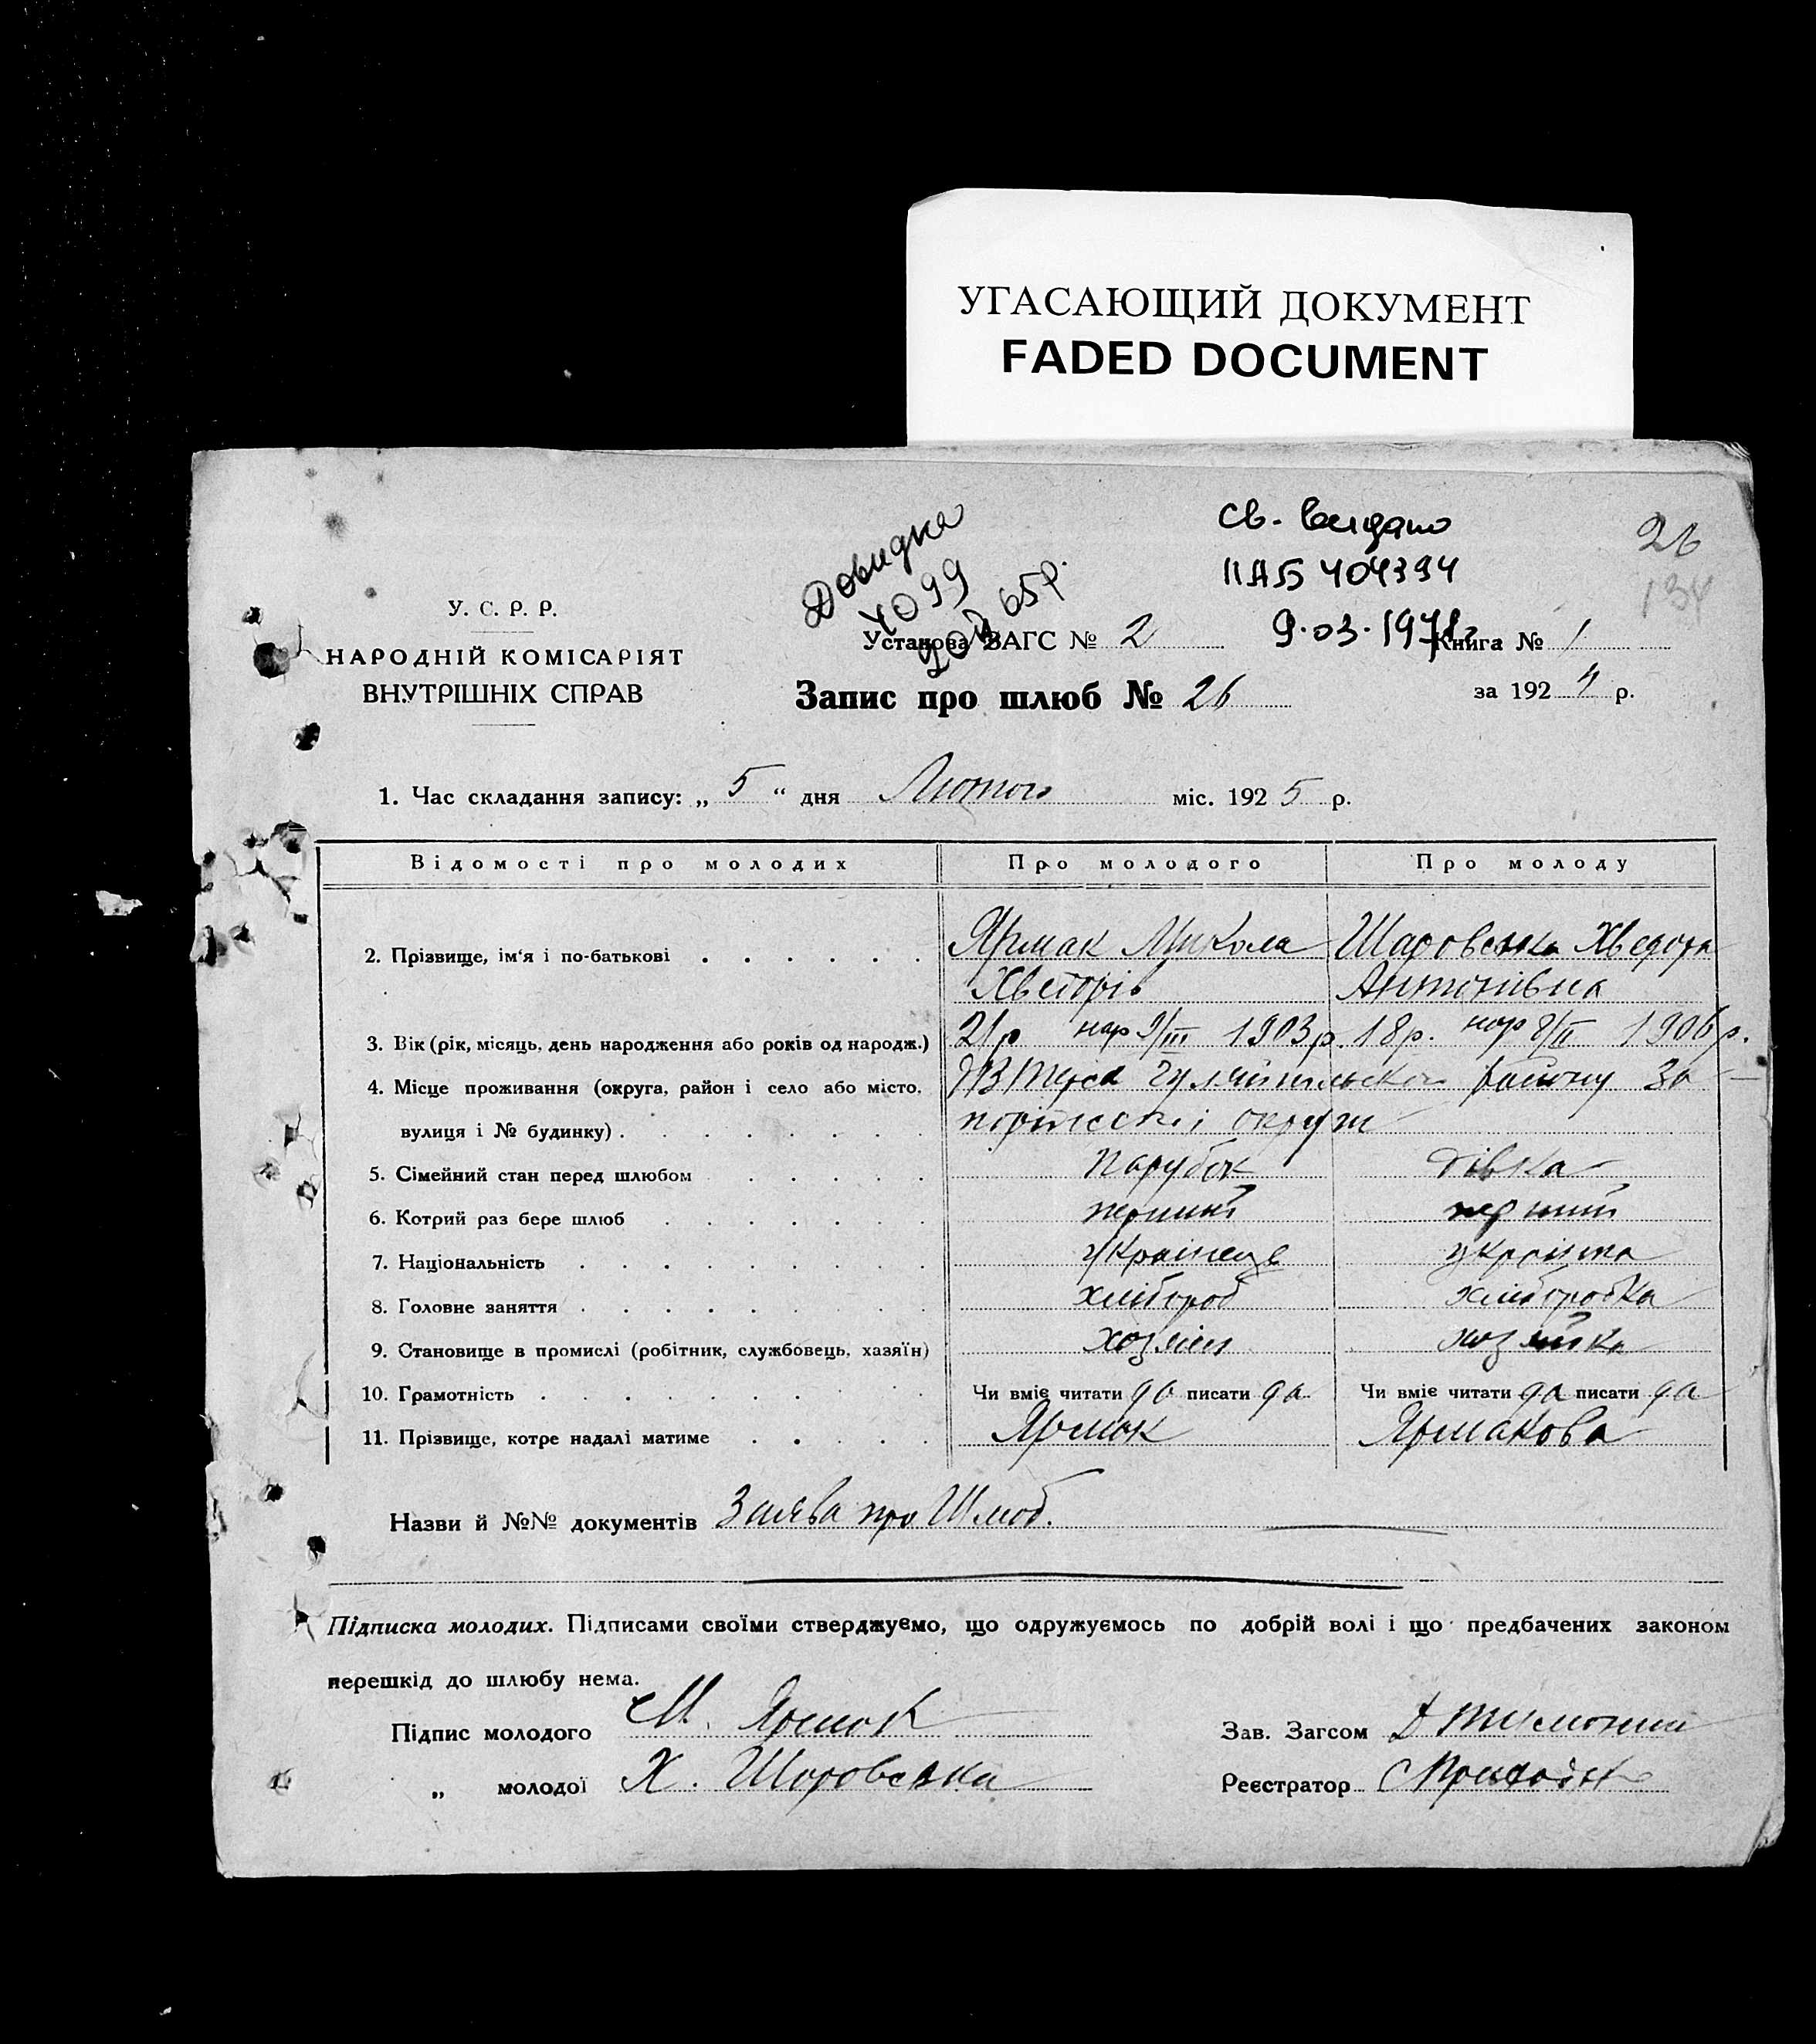 УГАСАЮЩИЙ ДОКУМЕНТ
FADED DOCUMENT
Довидка
4099
65р.
св. видано
ІІАБ 404394
9.03.1978г
26
134
У. С. Р. Р.
НАРОДНІЙ КОМІСАРІЯТ
ВНУТРІШНІХ СПРАВ
Установа ЗАГС № 2
Книга № 1
Запис про шлюб № 26
за 1924 р.
1. Час складання запису: „ 5 “ дня Лютого міс. 1925 р.
Відомості про молодих Про молодого Про молоду
2. Прізвище, ім'я і по-батькові Ярмак Микола Шаровська Хведора
Хведорів Антонівна
3. Вік (рік, місяць, день народження або років од народж.) 21р нар 9/III 1903р. 18р. нар 8/II 1906р.
4. Місце проживання (округа, район і село або місто, Гуляйпільського району За
вулиця і № будинку) порізської округи
5. Сімейний стан перед шлюбом Парубок дівка
6. Котрий раз бере шлюб перший перший
7. Національність українець українка
8. Головне заняття хлібороб хліборобка
9. Становище в промислі (робітник, службовець, хазяїн) хозяін хозяйка
10. Грамотність Чи вміє читати да писати да Чи вміє читати да писати да
11. Прізвище, котре надалі матиме Ярмак Ярмакова
Назви й №№ документів Заява про Шлюб.
Підписка молодих. Підписами своїми стверджуємо, що одружуємось по добрій волі і що предбачених законом
перешкід до шлюбу нема.
Підпис молодого М. Ярмак
Зав. Загсом
„ молодої Х. Шаровська
Реєстратор